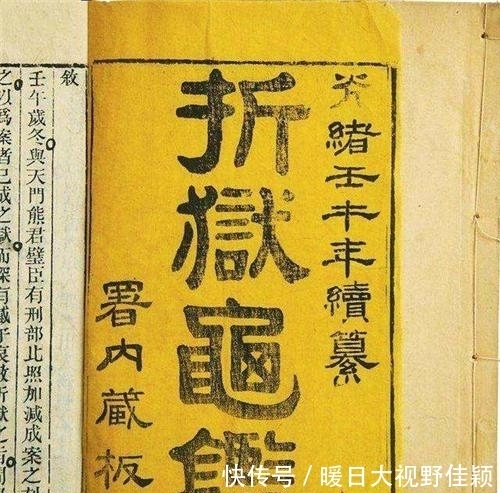 光緒壬午年續纂
折獄龜鑑
署內藏板
敘
壬午歲冬與天門熊君璧臣有刑部比照加減成案之刻
之以爲案者已成之獄而深有
快传号/暖日大视野佳颖